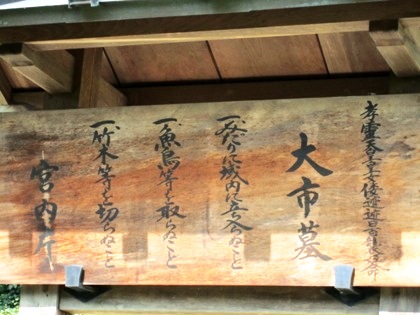 孝霊天皇皇女倭迹迹日百襲姫命
大市墓
一、みだりに域内に立ち入らぬこと
一、魚鳥等を取らぬこと
一、竹木等を切らぬこと
宮内庁